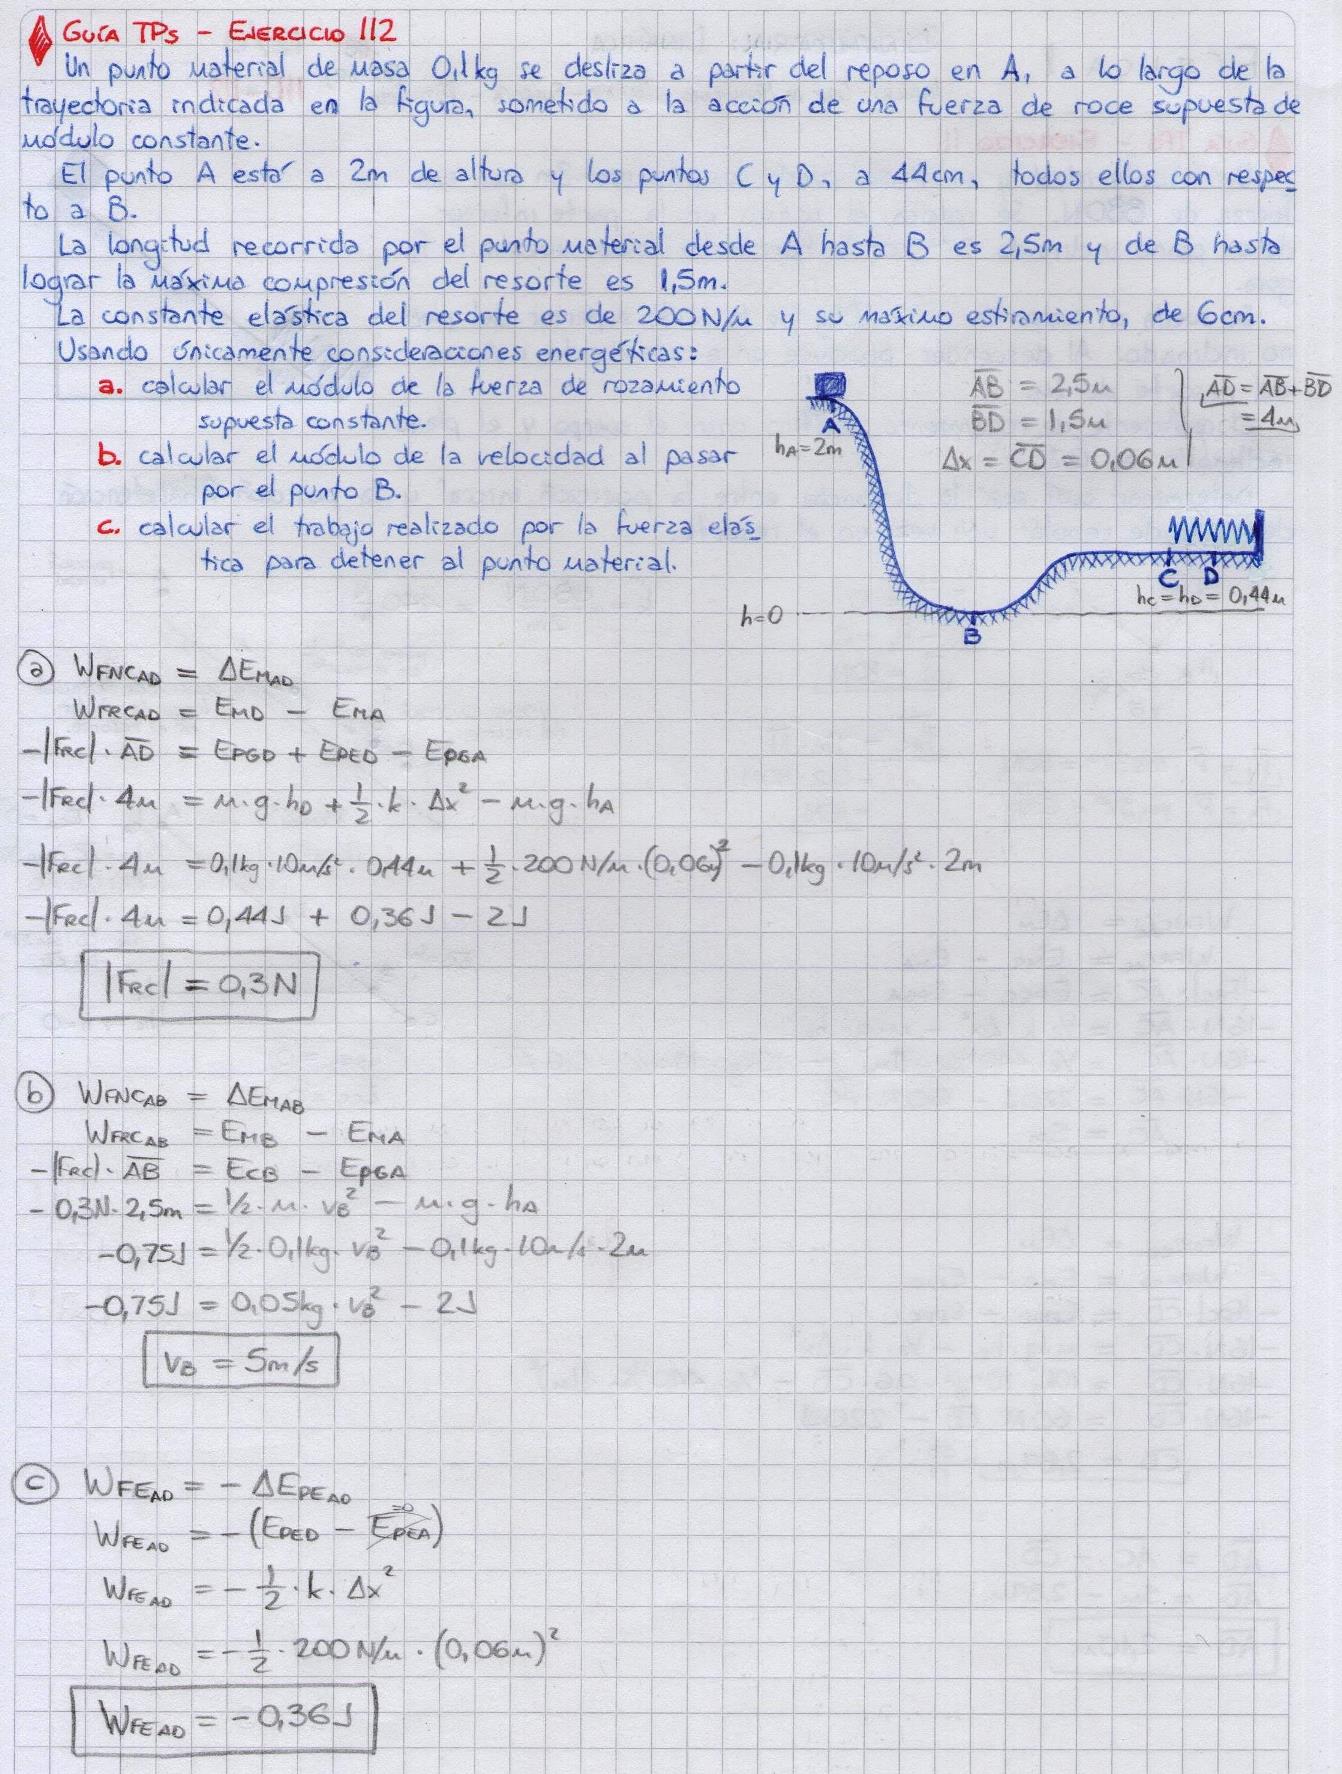 GUÍA TPs - EJERCICIO 112
Un punto material de masa 0,1kg se desliza a partir del reposo en A, a lo largo de la
trayectoria indicada en la figura, sometido a la acción de una fuerza de roce supuesta de
módulo constante.
El punto A está a 2m de altura y los puntos C y D, a 44cm, todos ellos con respec
to a B.
La longitud recorrida por el punto material desde A hasta B es 2,5m y de B hasta
lograr la máxima compresión del resorte es 1,5m.
La constante elástica del resorte es de 200N/m y su máximo estiramiento, de 6cm.
Usando únicamente consideraciones energéticas:
a. calcular el módulo de la fuerza de rozamiento
supuesta constante.
b. calcular el módulo de la velocidad al pasar
por el punto B.
c. calcular el trabajo realizado por la fuerza elás
tica para detener al punto material.
AB = 2,5m
BD = 1,5m
Δx = CD = 0,06m
AD = AB + BD
= 4m
A
hA = 2m
C D
hC = hD = 0,44m
h=0
B
a WFNCAD = ΔEMAD
WFRCAD = EMD - EMA
-|FRC|· AD = EPGD + EPED - EPGA
-|FRC|· 4m = m·g·hD + 1/2·k·Δx² - m·g·hA
-|FRC|· 4m = 0,1kg·10m/s²·0,44m + 1/2·200N/m·(0,06m)² - 0,1kg·10m/s²·2m
-|FRC|· 4m = 0,44J + 0,36J - 2J
|FRC| = 0,3N
b WFNCAB = ΔEMAB
WFRCAB = EMB - EMA
-|FRC|· AB = ECB - EPGA
-0,3N·2,5m = 1/2·m·vB² - m·g·hA
-0,75J = 1/2·0,1kg·vB² - 0,1kg·10m/s·2m
-0,75J = 0,05kg·vB² - 2J
vB = 5m/s
c WFEAD = -ΔEPEAD
WFEAD = -(EPED - EPEA) =0
WFEAD = -1/2·k·Δx²
WFEAD = -1/2·200N/m·(0,06m)²
WFEAD = -0,36J